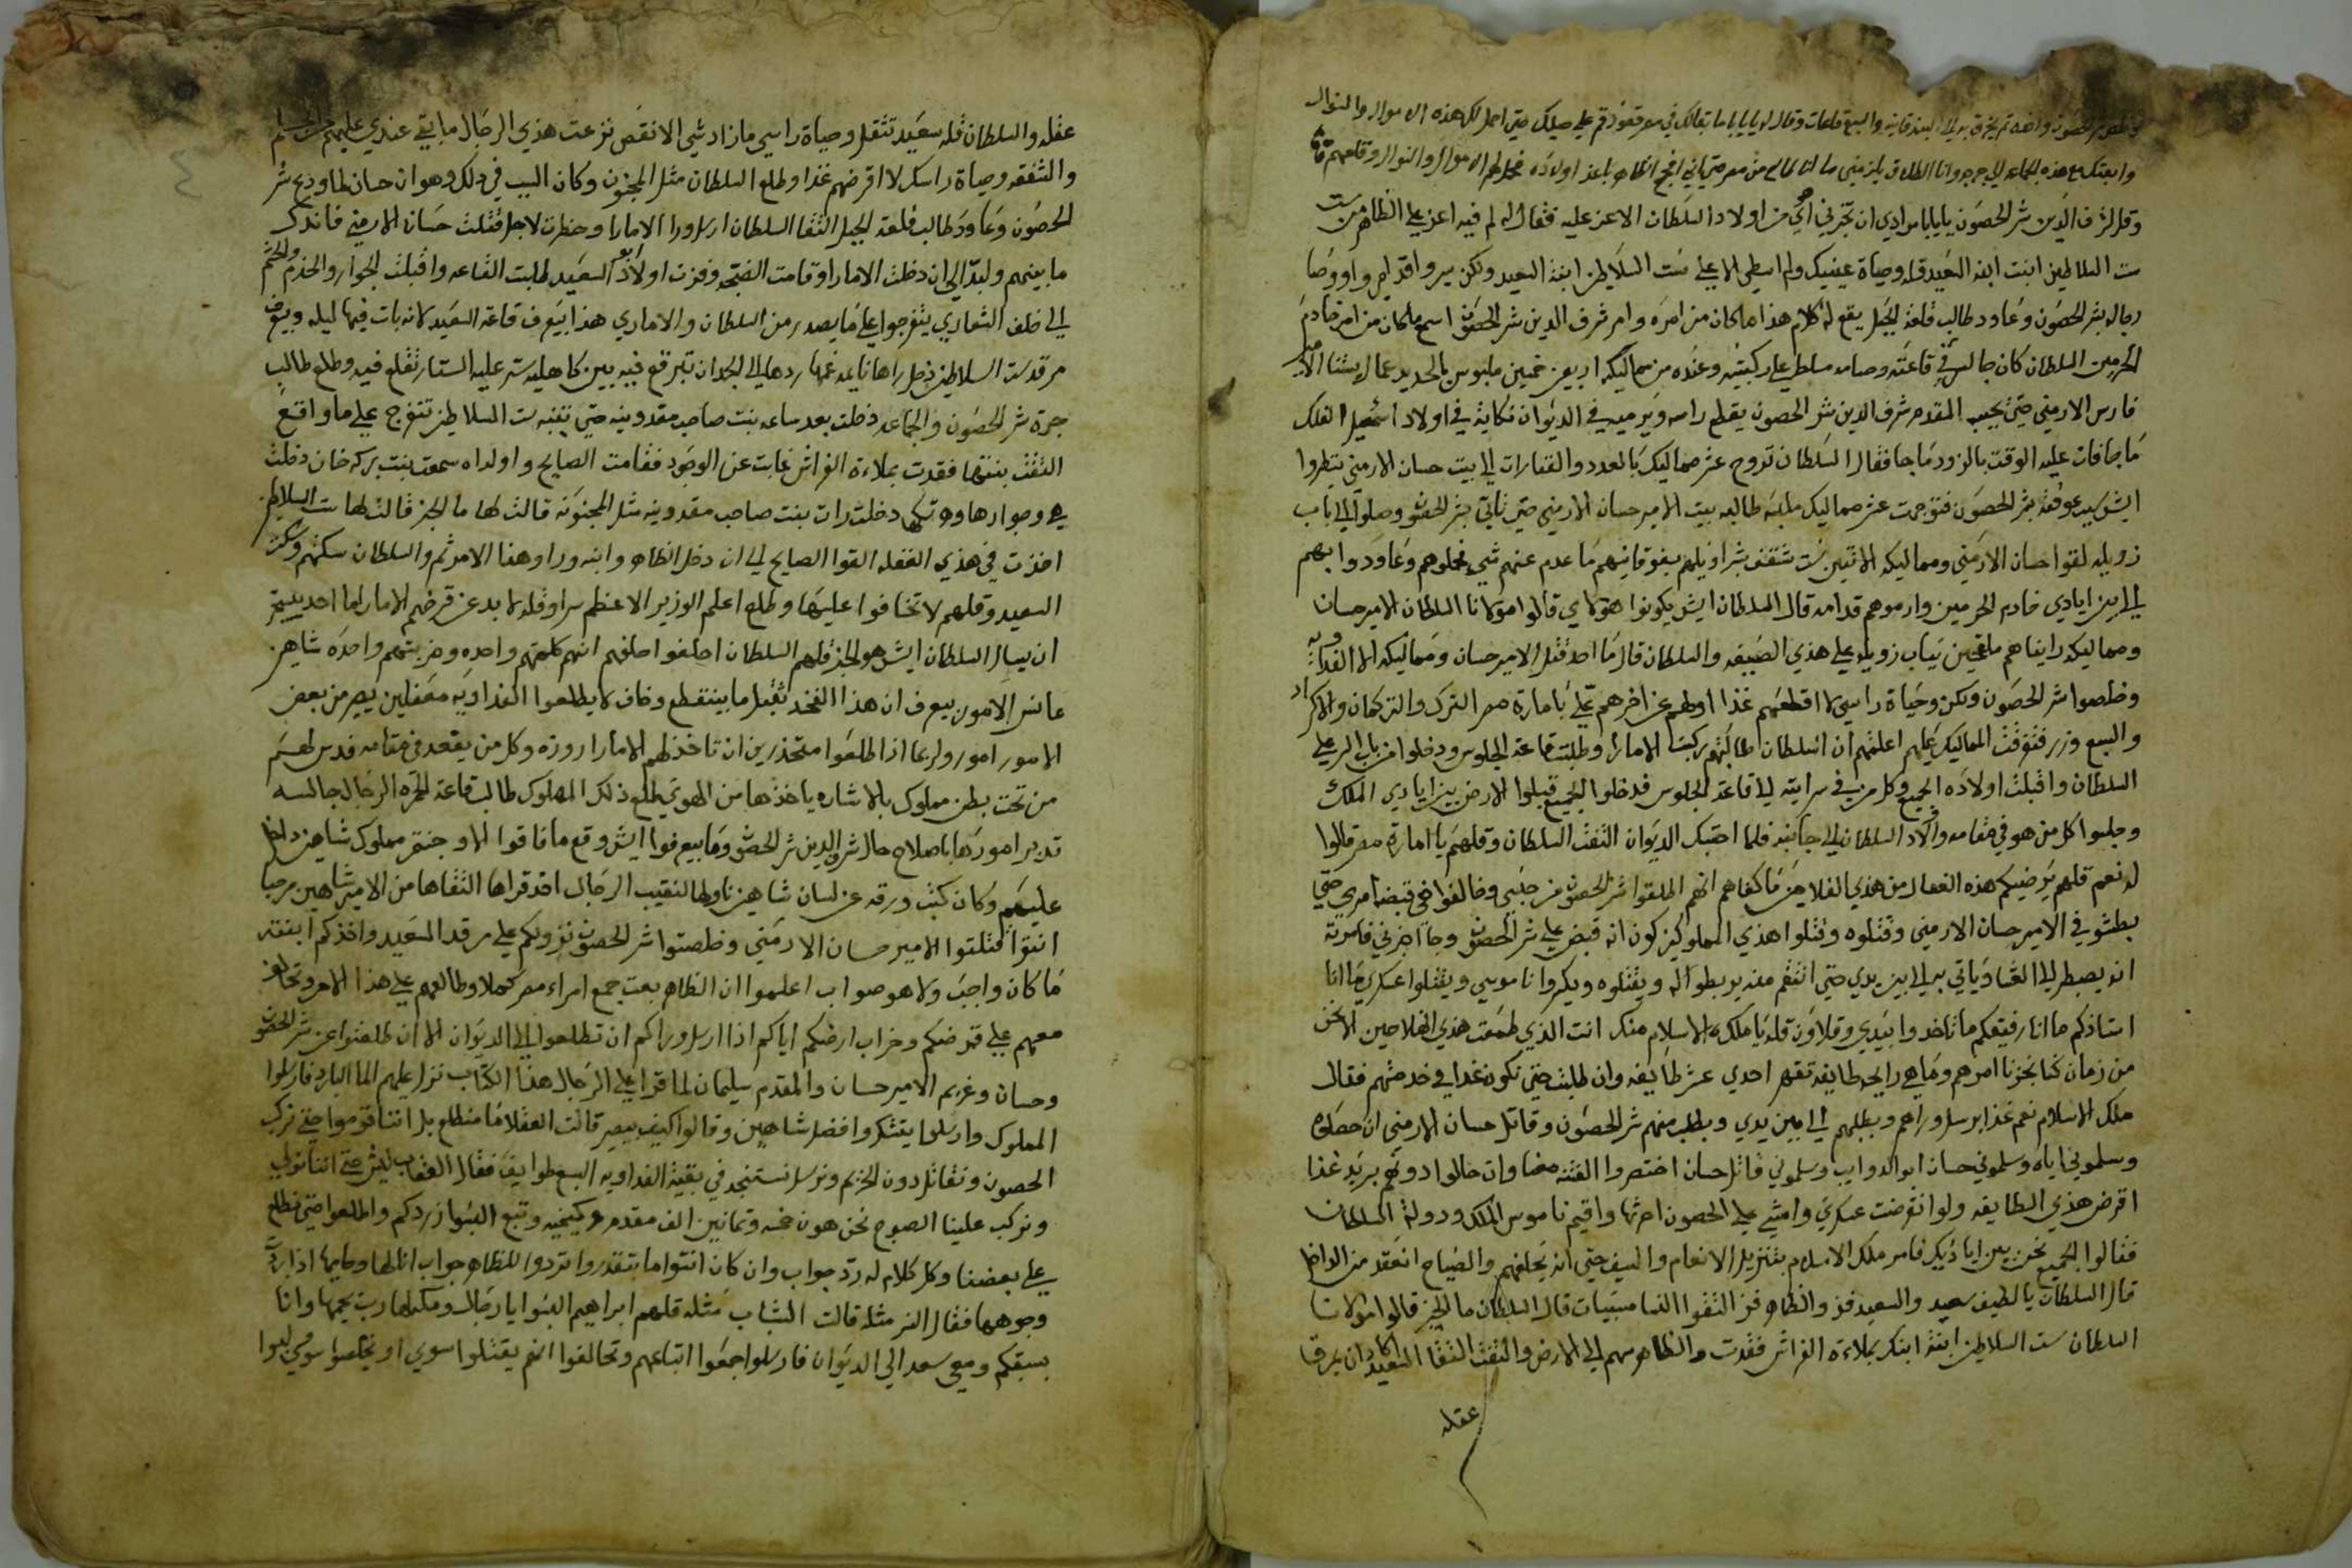 وقله لشرف الدين شر الحصون يا بابا مرادي ان تخبرني اي من اولاد السلطان الاعز عليه فقال له لم فيه اعز علي الظاهر من ست
ست السلاطين ابنت ابنه السعيد قله وحياة عينيك ولم اسطي الا علي ست السلاطين ابنة السعيد ولكن سير واقدامي واووصا
رجاله شر الحصون وعاود طالب قلعة الجبل يقع له كلام هذا ماكان من امره وامر شرف الدين شر الحصون اسمع ماكان من امر خادم
الحرمين السلطان كان جالس في قاعته وصامه مسلط علي ركبتيه وعنده من مماليكه اربعين خمسين ملبوس بالحديد عمال يستنا الامير
فارس الارمني حتي يجيب المقدم شرف الدين شر الحصون يقطم راسه ويرميه في الديوان نكاية في اولاد اسمعيل الفلك
ما جا فات عليه الوقت بالزود ما جا فقال السلطان تروح عشر مماليك بالعدد والقنارات الي بيت حسان الارمني ينظروا
ايش سبب عوقة شر الحصون فتوجهت عشر مماليك ملبسه طالبه بيت الامير حسان الارمني حتي تاتي بشر الحصون وصلوا الي باب
زويله لقوا حسان الارمني ومماليكه الاتنين ست شقف بشراويلهم بفوقانيهم ما عدم عنهم شي فحملوهم وعاودوا بهم
الي بين ايادي خادم الحرمين وارموهم قدامه قال السلطان ايش يكونوا هولاي قالوا مولانا السلطان الامير حسان
ومماليكه رايناهم ملقحين تياب زويله علي هذي الصيفه والسلطان قال ما احد قتل الامير حسان ومماليكه الا الفداويه
وخلصوا شر الحصون ولكن وحياة راسي لا اقطعهم غدا اولهم عن اخرهم علي بامارة مصر الترك والتركمان والاكراد
والسبع وزر فتفرقت المماليك عليهم اعلمتهم ان السلطان طالبهم ركبت الامارا وطلبت قاعة الجلوس ودخلوا من باب السر علي
السلطان واقبلت اولاده الجميع وكل من في سرايته الي قاعة الجلوس فدخلوا الجميع قبلوا الارض بين ايادي الملك
وجلسوا كل من هو في مقامه واولاد السلطان الي جانبه فلما احتبك الديوان التفت السلطان وقلهم يا امارة مصر قالوا
له نعم قلهم يرضيكم هذه الفعال من هذي الفلاحين ما كفاهم انهم اطلقوا شر الحصون من حبسي وخالفوا في قبضه امري حتي
بطشو في الامير حسان الارمني وقتلوه وقتلوا هذي المملوكين كون انه قبض علي شر الحصون وجا اخبرني فامرته
انه يصبر لي العشا وياتي به الي بين يدي حتي انتقم منه يربطوا له ويقتلوه ويكسروا ناموسي ويقتلوا عسكري ما انا
استاذكم ما انا رفيقكم ما تاخدوا بيدي وقلاوون قله يا ملك الاسلام منك انت الذي طمعت هذي الفلاحين الا نحن
من زمان كنا نحزنا امرهم وما هي رايحه طايفه تقهر احدي عشر طايفه وان طلبت حتي نكون غدا في خدمتهم فقال
ملك الاسلام نعم غدا برسل وراهم وبطلبهم الي بين يدي وبطلب منهم شر الحصون وقاتل حسان الارمني ان حصلوه
وسلموني اياه وسلموني حسان ابو الدوايب وسلموني قاتل حسان اختصروا الفتنه معنا وان حالوا دونهم بريد غدا
اقرض هذي الطايفه ولو انقرضت عسكري وامشي علي الحصون احرثها واقيم ناموس الملك ودولة السلطان
فقالوا الجميع نحن بين اياديك فامر ملك الاسلام بتنزيل الانعام والسيف حتي انه يحلفهم والصياح انعقد من الداخل
قال السلطان يا لطيف سعيد والسعيد فز والظاهر فز التقوا النسا مسبيات قال السلطان ما الخبر قالوا مولانا
السلطان ست السلاطين ابنة ابنك بملاءة الفراش فقدت والظاهر سهم الي الارض والتفت التقا السعيد كاد ان يمرق
عقله
عقله والسلطان قله سعيد تتقل وحياة راسي ما زاد شي الا نقص نزعت هذي الرجال ما بقي عندي عليهم من
والشفقه وحياة راسك لا اقرضهم غدا وطلع السلطان مثل المجنون وكان السبب في ذلك وهو ان حسان لما ودع شر
الحصون وعاود طالب قلعة الجبل التقا السلطان ارسل ورا الامارا وحضرت لاجل قتلت حسان الارمني فاندك
ما بينهم ولبد الي ان دخلت الامارا وقامت الضجه وفزت اولاد السعيد طلبت القاعه واقبلت الجوار والخدم والحشم
الي خلف الشعاري يتفرجوا علي ما يصدر من السلطان والاماري هذا بيعرف قاعة السعيد لانه بات فيها ليله وبيعرف
مرقد ست السلاطين دخل راها نايمه غمها ردها الي الجمدان تبرقع فيه بين كاهليه ستر عليه الستار تقلع فيه وطلع طالب
حجرة شر الحصون والجماعه دخلت بعد ساعه بنت صاحب مقدونيه حتي تنبه ست السلاطين تتفرج علي ما واقع
التفتت بنتها فقدت بملاءة الفراش غابت عن الوجود فقامت الصايح واولداه سمعت بنت بركه خان دخلت
هي وجوارها وتبكي دخلت رات بنت صاحب مقدونيه مثل المجنونه قالت لها ما الخبر قالت لها ست السلاطين
اخذت في هذي الغفله القوا الصايح الي ان دخل الظاهر وابنه وراو هذا الامر ثم والسلطان سكتهم وسكن
السعيد وقلهم لا تخافوا عليها وطلع اعلم الوزير الاعظم سرا وقله لا بد عن قرضهم الامارا ما احد بيجز
ان يسال السلطان ايش هو الخبر قلهم السلطان احلفوا حلفهم انهم كلمتهم واحده وضربتهم واحده شاهين
عانس الامور بيعرف ان هذا الفخذ تقيل ما بينقطع وخاف لا يطلعوا الفداويه مغفلين يصير من بعض
الامور امور ولربما اذا طلعوا متحذرين ان تاخذلهم الامارا روزه وكل من يقعد في مقامه فدس لهم
من تحت بطن مملوك بالاشاره ياخذها من الهوي طلع ذلك المملوك طالب قاعة الحره الرجال جالسه
تدبر امورها باصلاح حال شرف الدين شر الحصون وما بيعرفوا ايش وقع ما فاقوا الا وجنتمر مملوك شاهين داخل
عليهم وكان كتب ورقه عن لسان شاهين ناولها لنقيب الرجال اخد قراها التقاها من الامير شاهين مرحبا
انتوا قتلتوا الامير حسان الارمني وخلصتوا شر الحصون نزولكم علي مرقد السعيد واخذكم ابنته
ما كان واجب ولا هو صواب اعلموا ان الظاهر بعت جمع امراء مصر كملا وطالعهم علي هذا الامر وتحالف
معهم علي قرضكم وخراب ارضكم اياكم اذا ارسل وراكم ان تطلعوا الي الديوان الا ان طلعتوا عن شر الحصون
وحسان وغريم الامير حسان والمقدم سليمان لما قرا علي الرجال هذا الكتاب نزل عليهم الما البارد فارسلوا
المملوك وارسلوا يتشكروا فضل شاهين وقالوا كيف بيصير قالت العقلا ما منطلع بل اننا قوموا حتي نركب
الحصون ونقاتل دون الحريم ونرسل نستنجد في بقية الفداويه السبع طوايف فقال العقاب ليش حتي اننا نولي
ونركب علينا الصبوح نحن هون خمسه وتمانين الف مقدم وكيخيه وتبع البسوا زردكم واطلعوا حتي نطلع
علي بعضنا وكل كلام له رد جواب وان كان انتوا ما بتقدروا تردوا للظاهر جواب انا لها وحاميها اذا ازرت
وجوهها فقال النسر مثله قالت الشباب مثله قلهم ابراهيم البسوا يا رجال ومكملها رب يحميها وانا
بسبقكم ومعي سعد الي الديوان فارسلوا جمعوا اتباعهم وتحالفوا انهم يقتلوا سوي او يخلصوا سوي لبسوا